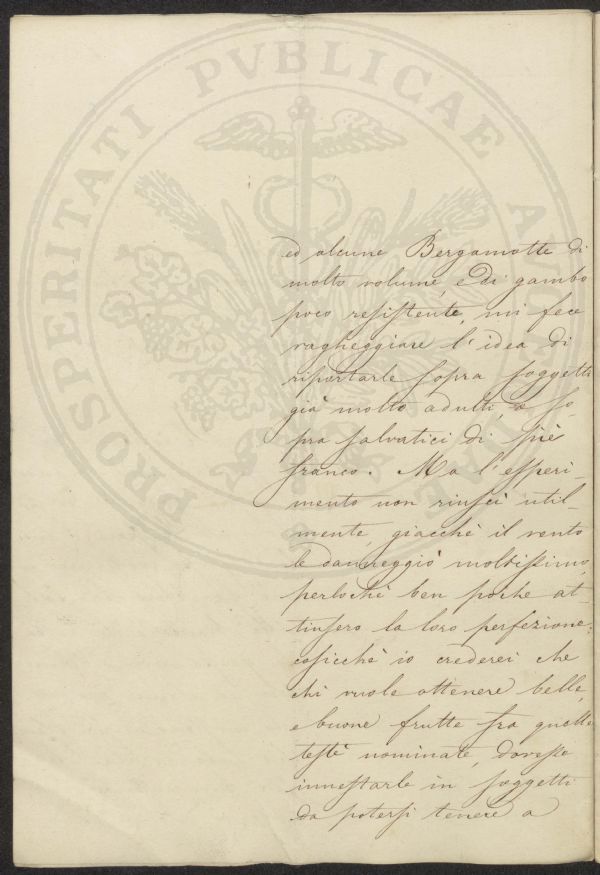 PROSPERITATI PVBLICAE AV
ed alcune Bergamotte di
molto volume, e di gambo
poco resistente, mi fece
vagheggiare l'idea di
riportarle sopra soggetti
già molto adulti, o so-
pra salvatici di piè
franco. Ma l'esperi-
mento non riuscì util-
mente, giacchè il vento
le danneggiò moltissimo,
perlochè ben poche at-
tinsero la loro perfezione;
cosicchè io crederei che
chi vuole ottenere belle,
e buone frutte fra quelle
testè nominate, dovesse
innestarle in soggetti
da potersi tenere a